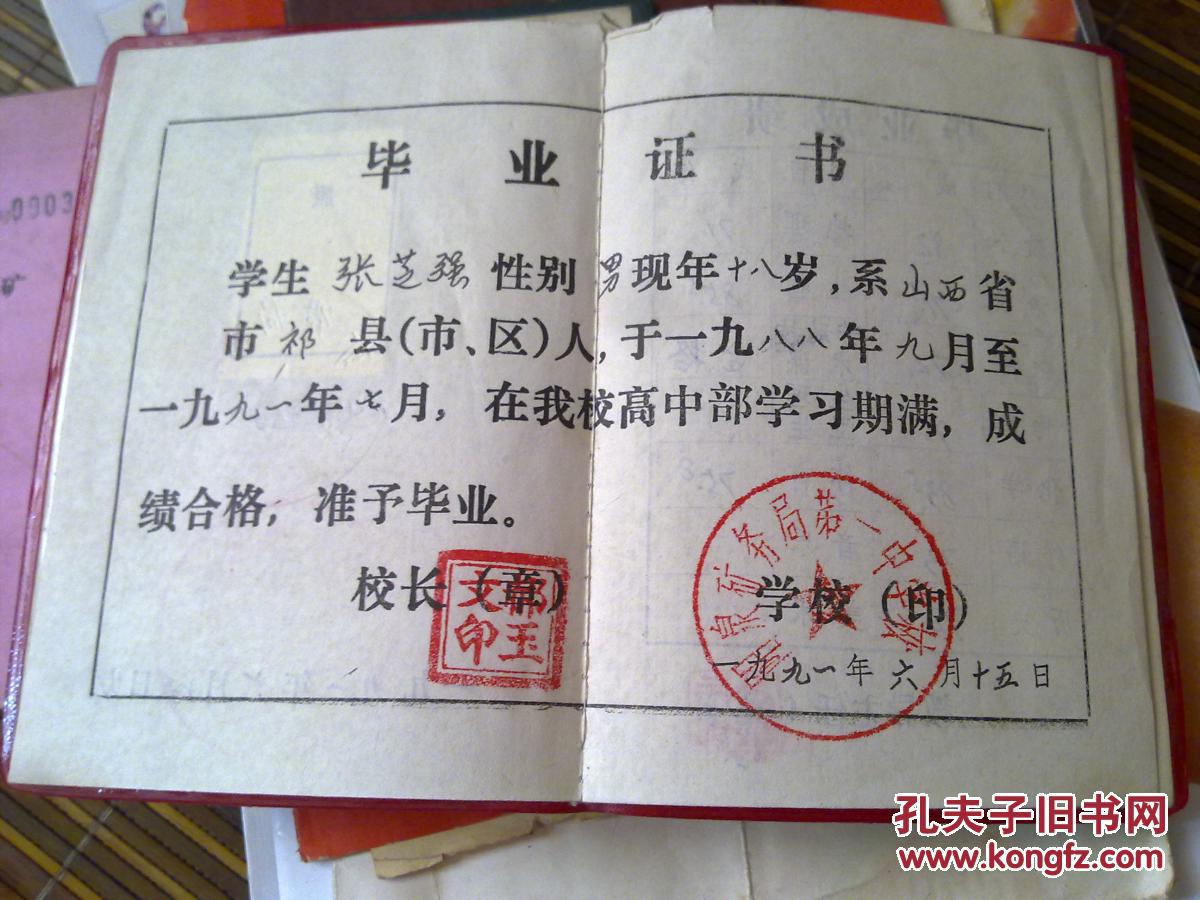 0903
矿
毕业证书
学生张芝强性别男现年十八岁,系山西省
市祁县(市、区)人,于一九八八年九月至
一九九一年七月,在我校高中部学习期满,成
绩合格,准予毕业。
校长(章) 学校(印)
玉文印
泉矿务局第一中学校
一九九一年六月十五日
孔夫子旧书网
www.kongfz.com